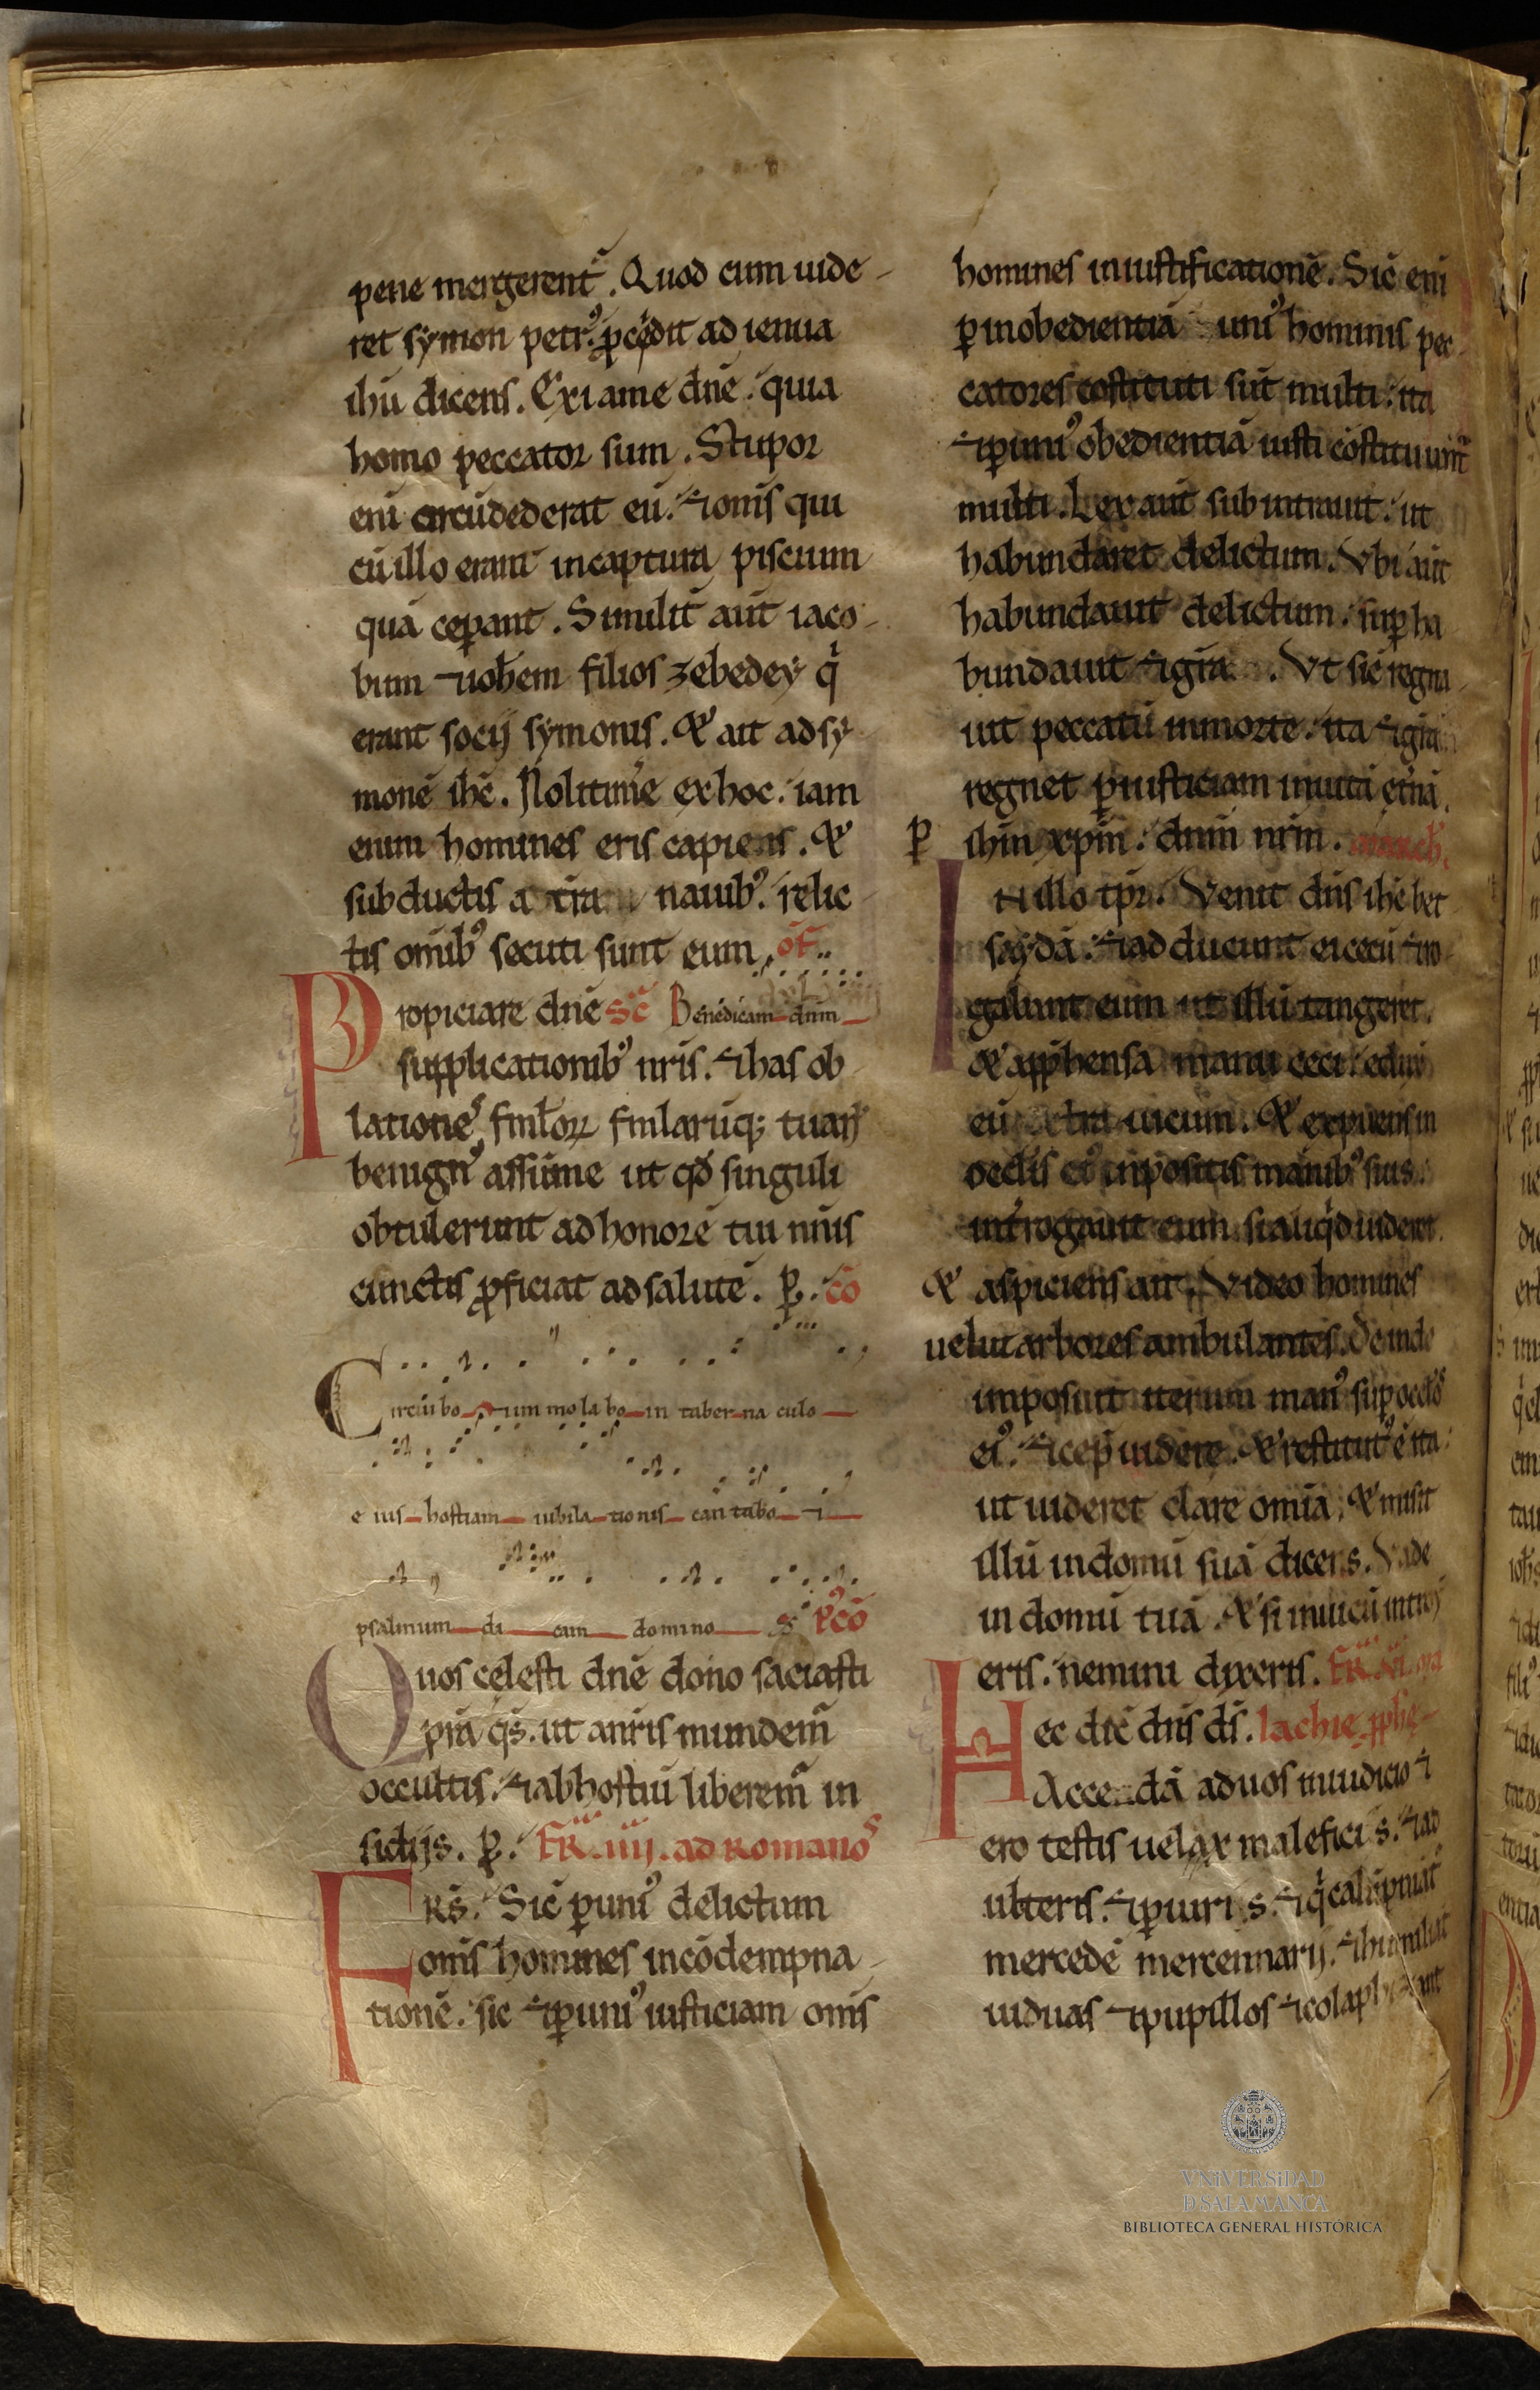 pene mergerent᷑. Quod cum uide-
ret symon petrꝰ. ꝓcedit ad ienua
ihū dicens. Exi a me dn̄e. quia
homo peccator sum. Stupor
eni circūdederat eū. ⁊ om̄s qui
cū illo erant in captura piscium
quā ceꝑant. Similit̄ aūt iaco-
bum ⁊ ioħem filios zebedey qͥ
erant socij symonis. & ait ad sy
monē ihc̄. Noli tim̄e ex hoc. iam
enim homines eris capiens. &
subductis a tr̄a nauibꝰ. relic
tis om̄ibꝰ secuti sunt eum. of̄
Propiciare dn̄e sc̄ Benedicam dnm
supplicationibꝰ nr̄is. ⁊ has ob
lationeˢ fml̄oꝝ fml̄arūqꝫ tuaꝝ
benignꝰ assume ut qđ singuli
obtulerunt ad honorē tui nīis
cunctis ꝓficiat ad salutē. ꝑ. cō
Circuibo ⁊ immolabo in taber na culo
e ius hostiam iubila tionis cantabo ⁊
psalmum di cam domino P̄cō
Quos celesti dn̄e dono saciasti
pr̄a qs̄. ut a nr̄is mundem᷑
occultis. ⁊ ab hostiū liberem᷑ in
sidijs. ꝑ. FR̄. iiij. ad Romanoˢ
FRs̄. Sic̄ ꝑ uniꝰ delictum
om̄s homines in cōdempna-
tionē. sic ⁊ ꝑ uniꝰ iusticiam om̄s
homines in iustificationē. Sic̄ eni
ꝑ inobedientiā uniꝰ hominis pec
catores cōstituti sūt multi. ita
⁊ ꝑ uniꝰ obedientiā iusti cōstituunt᷑
multi. Lex aūt subintrauit. ut
habundaret delictum. Vbi aūt
habundauit delictum. suꝑ ha
bundauit ⁊ gr̄a. Vt sic̄ regna
uit peccatū in morte. ita ⁊ gr̄a
regnet ꝑ iusticiam in uitā et̄nā.
ꝑ ihm̄ xpm̄. dnm̄ nr̄m.
IN illo tpr̄. Venit dn̄s ihc̄ bet
saydā. ⁊ adducunt ei cecū ⁊ ro-
gabant eum ut illū tangeret.
& appħensa manu ceci. eduxit
eū extra uicum. & expuens in
oc̄lis eiꝰ inpositis manibꝰ suis.
int̄rogauit eum si aliqͥd uideret.
& aspiciens ait. Video homines
uelut arbores ambulantes. Deinde
imposuit iterum manꝰ suꝑ oc̄los
eiꝰ. ⁊ cepit uidere. & restitutꝰ ē ita
ut uideret clare omīa. & misit
illū in domū suā dicens. Vade
in domū tuā. & si in uicū introi
eris. nemini dixeris. FR̄. vi.
Hec dic̄ dn̄s ds̄. lachie pphe-
Accedā ad uos in iudicio ⁊
ero testis uelax maleficis. ⁊ ad
ulteris. ⁊ ꝑiuris. ⁊ qͥ calūpniāt᷑
mercedē mercennarij. ⁊ humiliat
uiduas ⁊ pupillos ⁊ colaphizant
VNiVERSiDAD
D SALAMANCA
BIBLIOTECA GENERAL HISTÓRICA